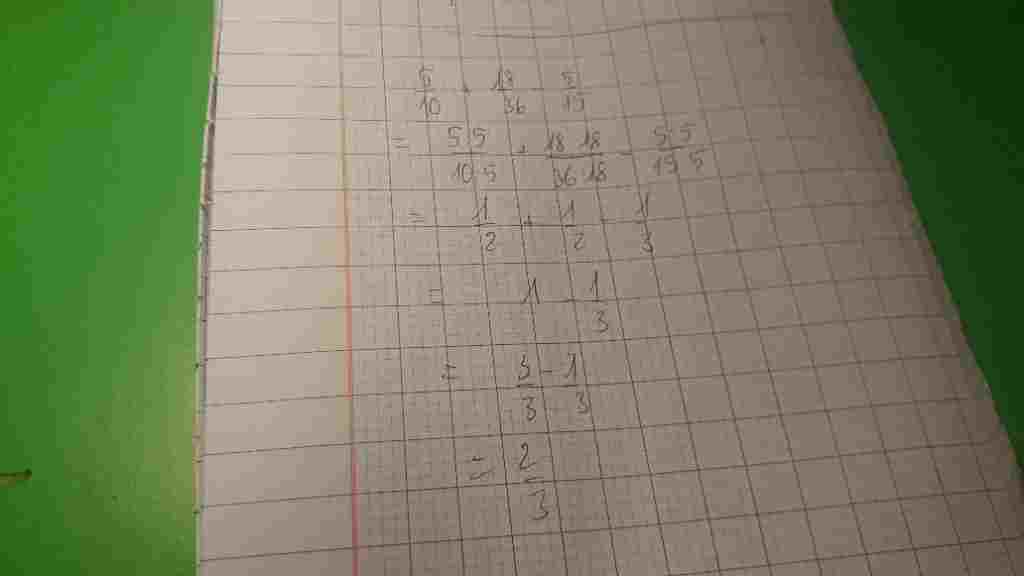 5/10 + 18/36 - 5/15
= 5:5/10:5 + 18:18/36:18 - 5:5/15:5
= 1/2 + 1/2 - 1/3
= 1 - 1/3
= 3/3 - 1/3
= 2/3